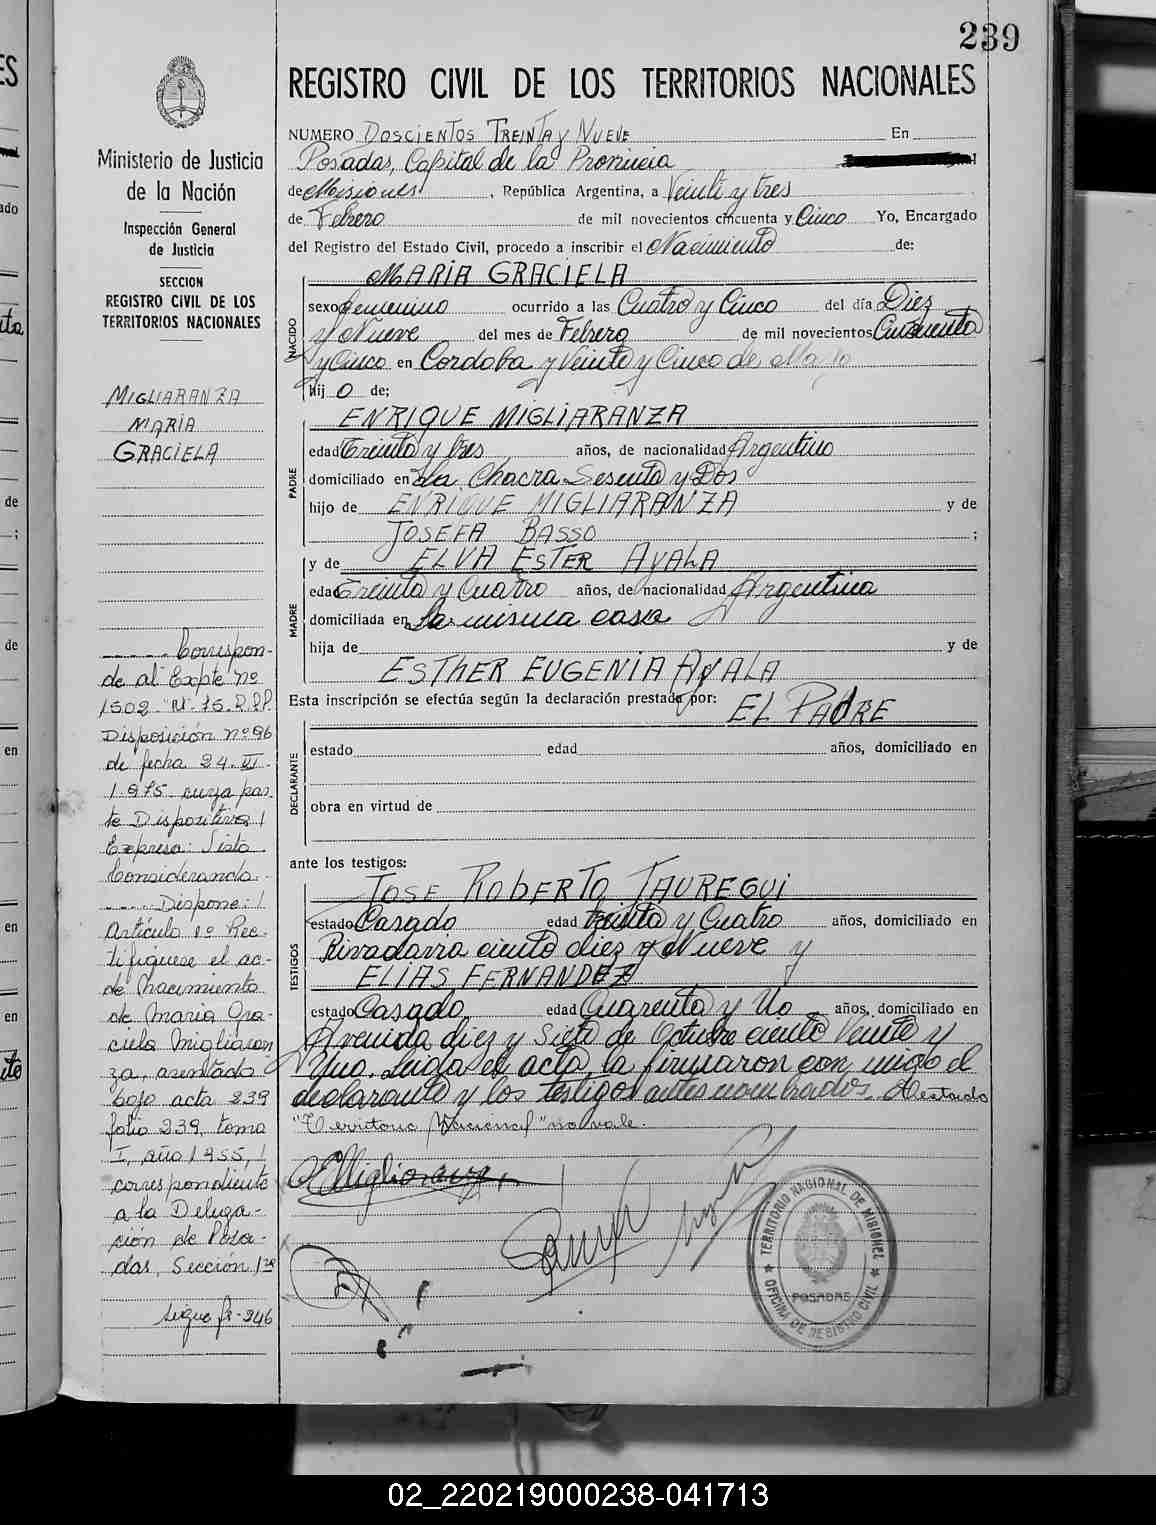 239
REGISTRO CIVIL DE LOS TERRITORIOS NACIONALES
Ministerio de Justicia
de la Nación
Inspección General
de Justicia
SECCION
REGISTRO CIVIL DE LOS
TERRITORIOS NACIONALES
MIGLIARANZA
MARÍA
GRACIELA
Correspon-
de al Expte nº
1502
Disposición nº 96
de fecha 24. VI.
1.975 cuya par-
te Dispositiva/
Expresa: Visto
Considerando
Dispone:/
Artículo 1º Rec-
tifiquese el ac-
de Nacimiento
de Maria Gra-
ciela Migliaran
za, asentada
bajo acta 239
folio 239, tomo
I, año 1955,/
correspondiente
a la Delega-
ción de Posa-
das, Sección 1ra
Sigue fº 246
NUMERO DOSCIENTOS TREINTA y NUEVE En
Posadas, Capital de la Provincia
de Misiones, República Argentina, a Veinti y tres
de Febrero de mil novecientos cincuenta y Cinco Yo, Encargado
del Registro del Estado Civil, procedo a inscribir el Nacimiento de:
NACIDO
MARÍA GRACIELA
sexo femenino ocurrido a las Cuatro y Cinco del día Diez
y Nueve del mes de Febrero de mil novecientos Cincuenta
y Cinco en Cordoba y Veinte y Cinco de Mayo
hij o de;
PADRE
ENRIQUE MIGLIARANZA
edad Treinta y tres años, de nacionalidad Argentino
domiciliado en La Chacra Sesenta y Dos
hijo de ENRIQUE MIGLIARANZA y de
JOSEFA BASSO ;
MADRE
y de ELVA ESTER AYALA
edad Treinta y Cuatro años, de nacionalidad Argentina
domiciliada en La misma casa
hija de y de
ESTHER EUGENIA AYALA
Esta inscripción se efectúa según la declaración prestada por: EL PADRE
DECLARANTE
estado edad años, domiciliado en
obra en virtud de
ante los testigos:
TESTIGOS
JOSE ROBERTO JAUREGUI
estado Casado edad treinta y Cuatro años, domiciliado en
Rivadavia ciento diez y Nueve y
ELIAS FERNANDEZ
estado Casado edad Cuarenta y Uno años, domiciliado en
Avenida diez y Siete de Octubre ciento Veinte y
Uno. Leida el acta, la firmaron con migo el
declarante y los testigos antes nombrados. Destado
"Territorio Nacional" no vale.
EMigliaranza
TERRITORIO NACIONAL DE MISIONES
POSADAS
OFICINA DE REGISTRO CIVIL
ES
ado
de
;
de
en
en
en
02_220219000238-041713